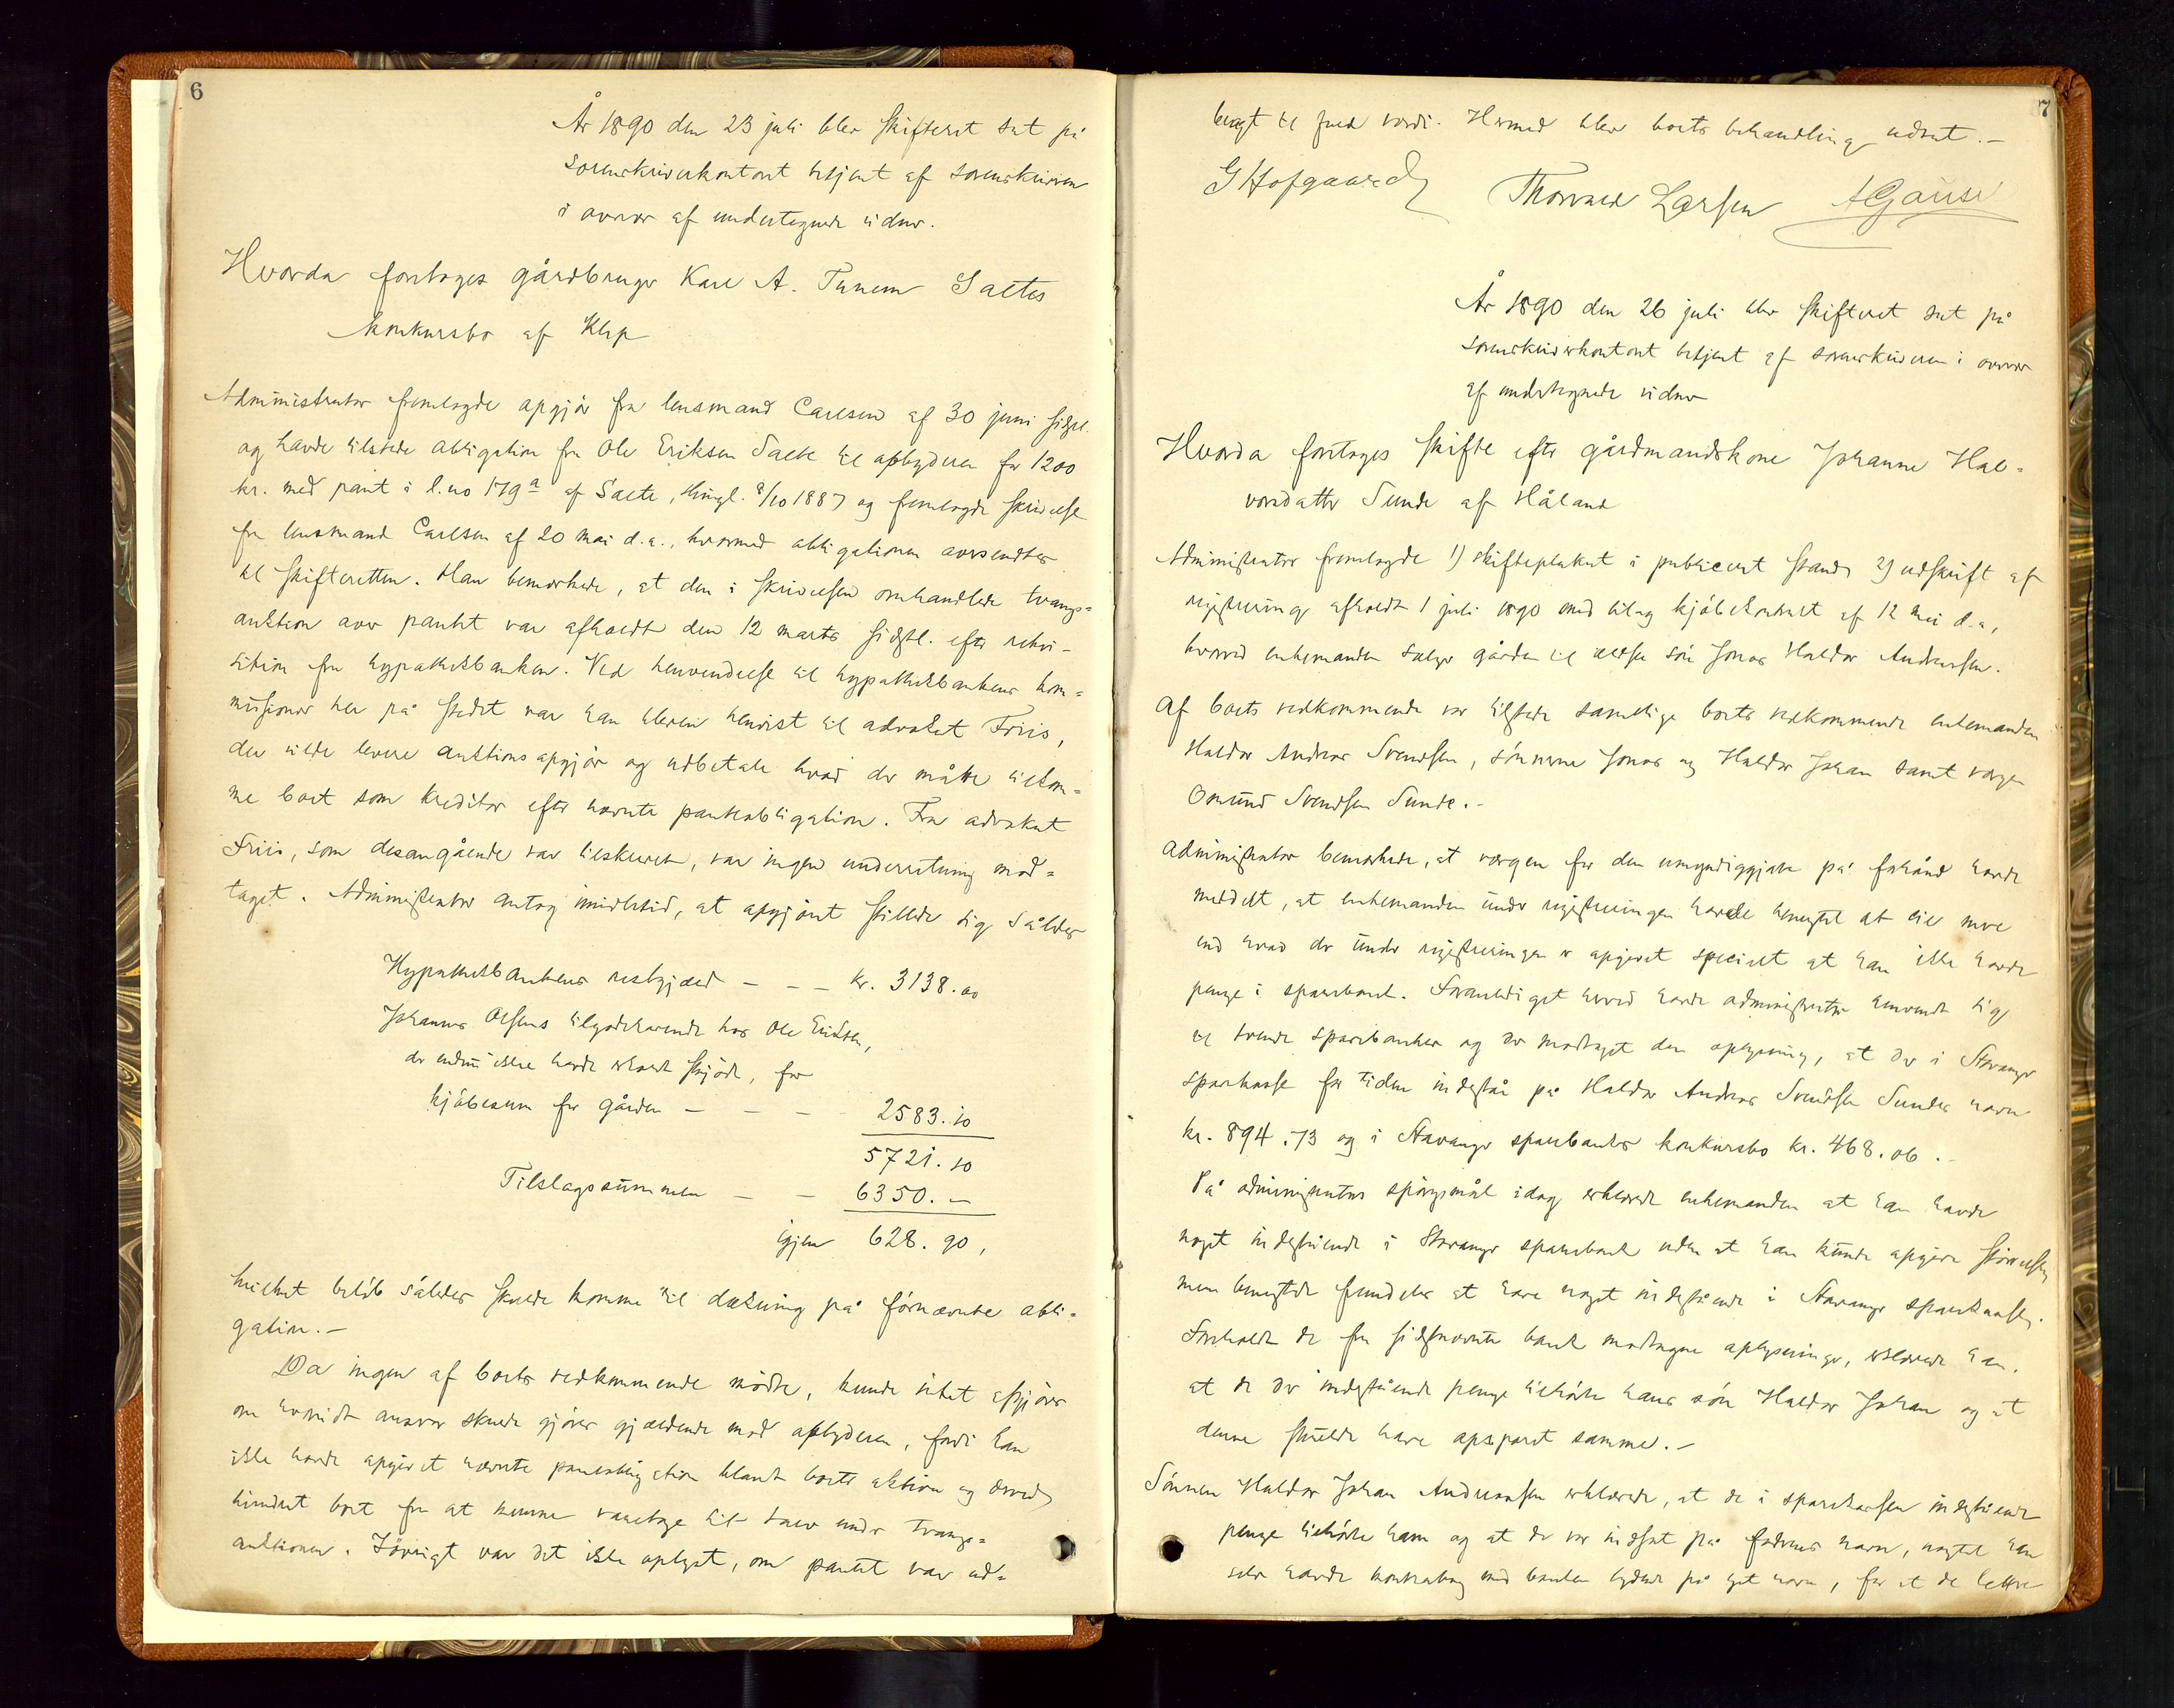 6
År 1890 den 23 juli blev skifteret sat på
sorenskriverkontoret betjent af sorenskriveren
i overvær af undertegnede vidner.
Hvorda foretoges gårdbruger Karl A. Tunem Saeles
konkursbo af Klep
Administrator fremlagde opgjør fra lensmand Carlsen af 30 juni sidstl.
og havde tilstede obligation fra Ole Eriksen Saele til opbyderen for 1200
kr. med pant i l.no 179a af Saele, thingl. 8/10 1887 og fremlagde skrivelse
fra lensmand Carlsen af 20 mai d.a., hvormed obligationen oversendtes
til skifteretten. Han bemærkede, at den i skrivelsen omhandlede tvangs=
auktion over pantet var afholdt den 12 marts sidstl. efter rekvi-
sition fra hypothekbanken. Ved henvendelse til hypothekbankens kom=
missionær her på stedet var han bleven henvist til advokat Friis,
der vilde levere auktionsopgjør og udbetale hvad der måtte tilkom=
me boet som kreditor efter nævnte panteobligation. Fra advokat
Friis, som desangående var tilskrevet, var ingen underretning mod=
taget. Administrator antog imidlertid, at opgjøret stillede sig således
Hypothekbankens restgjæld - - - kr. 3138.00
Johannes Olsens tilgodehavende hos Ole Eriksen,
der endnu ikke havde erholdt skjøde, for
kjøbesum for gården - - - 2583.10
5721.10
Tilslagssummen - - 6350.-
igjen 628.90,
hvilket beløb således skulde komme til dækning på førnævnte obli=
gation.-
Da ingen af boets vedkommende mødte, kunde intet afgjøres
om hvorvidt ansvar skulde gjøres gjældende mod opbyderen, fordi han
ikke havde opgivet nævnte panteobligation blandt boets aktiva og derved
hindret boet fra at kunne varetage sit tarv under tvangs=
auktionen. Iøvrigt var det ikke oplyst, om pantet var ud=
7
bragt til fuld værdi. Hermed blev boets behandling udsat.-
G Hofgaard Thorvald Larsen A Gause
År 1890 den 26 juli blev skifteret sat på
sorenskriverkontoret betjent af sorenskriveren i overvær
af undertegnede vidner
Hvorda foretoges skifte efter gårdmandskone Johanne Hal=
vorsdatter Sunde af Håland
Administrator fremlagde 1) skifteplakat i publiceret stand 2) udskrift af
registrering afholdt 1 juli 1890 med bilag kjøbekontrakt af 12 mai d.a.,
hvorved enkemanden sælger gården til ældste søn Jonas Haldor Andreassen.
Af boets vedkommende var tilstede samtlige boets vedkommende enkemanden
Haldor Andreas Svendsen, sønnerne Jonas og Haldor Johan samt vergen
Omund Svendsen Sunde.-
Administrator bemærkede, at vergen for den umyndiggjorte på forhånd havde
meddelt, at enkemanden under registreringen havde benegtet at eie mere
end hvad der under registreringen er opgivet specielt at han ikke havde
penge i sparebank. Foranlediget herved havde administrator henvendt sig
til trende sparebanker og der modtaget den oplysning, at der i Stavanger
sparekasse for tiden indestår på Haldor Andreas Svendsen Sundes navn
kr. 894.73 og i Stavanger sparebanks konkursbo kr. 468.06.-
På administrators spørgsmål idag erklærede enkemanden at han havde
noget indestående i Stavanger sparebank uden at han kunde opgive størrelsen,
men benegtede fremdeles at have noget indestående i Stavanger sparekasse.
Foreholdt de fra sidstnævnte bank modtagne oplysninger, erklærede han,
at de der indestående penge tilhørte hans søn Haldor Johan og at
denne skulde have opsparet samme.-
Sønnen Haldor Johan Andreassen erklærede, at de i sparekassen indestående
penge tilhørte ham og at de var indsat på faderens navn, uagtet han
selv havde kontrabog med banken lydende på eget navn, for at de lettere